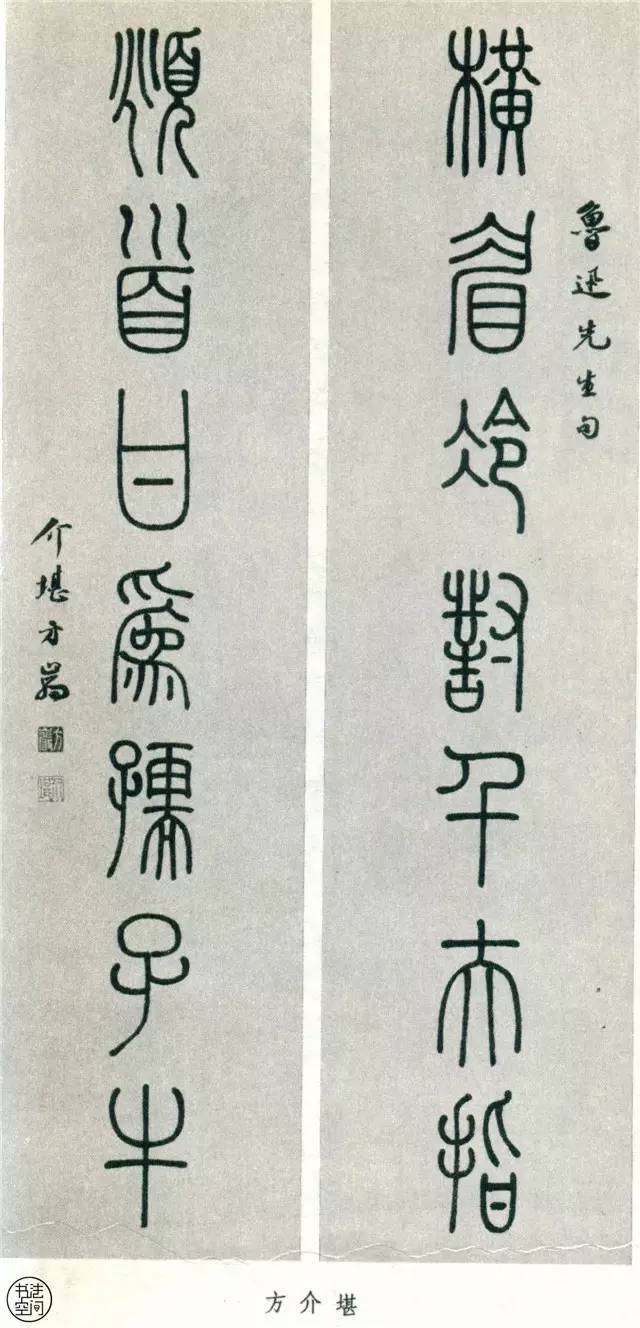 魯迅先生句
橫眉冷對千夫指
頫首甘為孺子牛
介堪方
方介堪
书法
空间